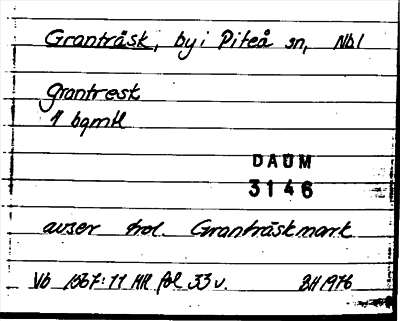 Granträsk, by i Piteå sn, Nbl
grantresk
4 bqmtl
DAUM
3146
avser trol. Granträskmark
Vb 1567:11 HR fol 33 v. BH 1976